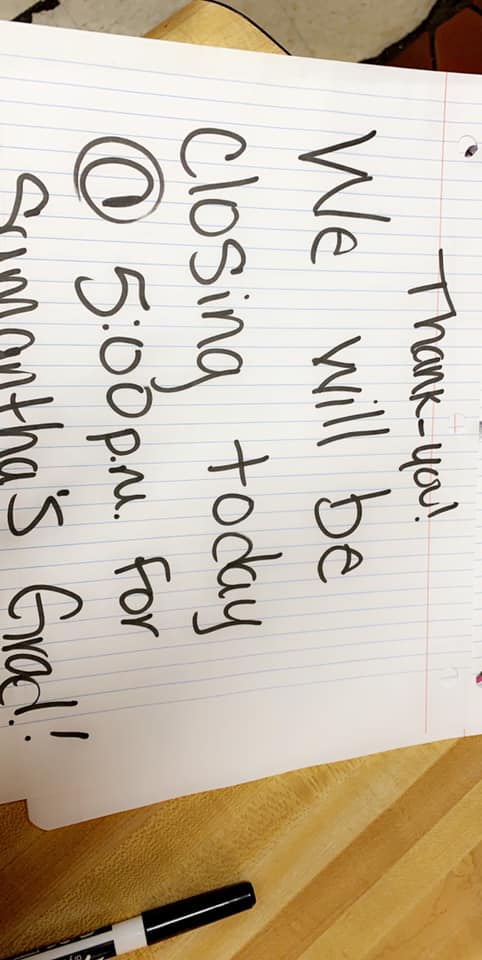 Thank-you!
We will be
closing today
@ 5:00 p.m. for
Samantha's Grad!!